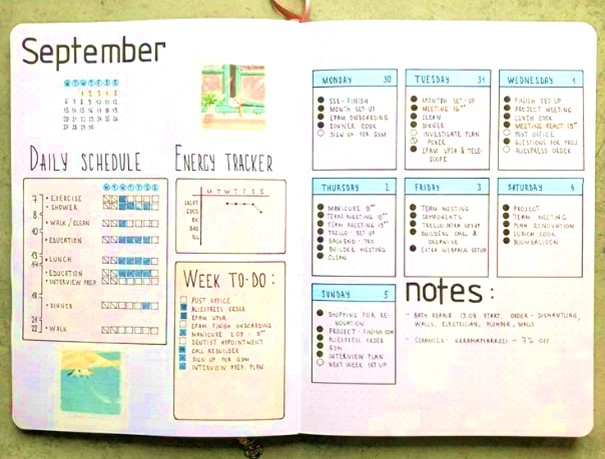 September
M T W T F S S
1 2 3 4 5
6 7 8 9 10 11 12
13 14 15 16 17 18 19
20 21 22 23 24 25 26
27 28 29 30
DAILY SCHEDULE
M T W T F S S
7 • EXERCISE
• SHOWER
8
• WALK / CLEAN
9
10 • EDUCATION
• LUNCH
14 • EDUCATION
• INTERVIEW PREP.
18 • DINNER
21
22 • WALK
ENERGY TRACKER
M T W T F S S
GREAT
GOOD
OK
BAD
ILL
WEEK TO-DO:
POST OFFICE
ALIEXPRESS ORDER
EPAM UPSA
EPAM FINISH ONBOARDING
MANICURE 2.09 - 9
DENTIST APPOINTMENT
CALL REBUILDER
SIGN UP FOR GYM
INTERVIEW PREP. PLAN
MONDAY 30
FINISH
MONTH SET-UP
EPAM ONBOARDING
DINNER COOK
SIGN UP FOR GYM
TUESDAY 31
MONTH SET-UP
MEETING 16
CLEAN
DINNER
INVESTIGATE PLAN
POKER
EPAM UPSA & TELE-
SCOPE
WEDNESDAY 1
FINISH SET-UP
PROJECT MEETING
LUNCH COOK
MEETING REACT 15
POST OFFICE
QUESTIONS FOR PROJ.
ALIEXPRESS ORDER
THURSDAY 2
MANICURE 9
TEAM MEETING
TEAM MEETING
TRELLO - SET UP
BACKEND - TXT
BUILDERS MEETING
CLEAN
FRIDAY 3
TEAM MEETING
COMPONENTS
TRELLO SET UP
BUILDERS CALL &
ORGANISE
EXTRA WEBPAGE SETUP
SATURDAY 4
PROJECT
TEAM MEETING
PLAN RENOVATION
LUNCH COOK
BOOMBALLOON
SUNDAY 5
SHOPPING FOR RE-
NOVATION
PROJECT - FINISH COM
ALIEXPRESS ORDER
GYM
INTERVIEW PLAN
NEXT WEEK SET UP
notes:
- BATH REPAIR 13.09 START. ORDER - DISMANTLING,
WALLS, ELECTRICIAN, PLUMBER, WALLS
- CERAMICS - KERAMAMARAZZI - 7% OFF